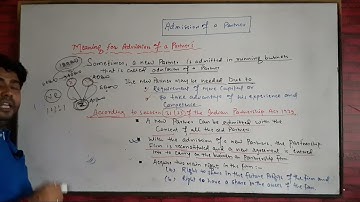 Admission of a Partner
Meaning for Admission of a Partner:
Sometimes, a new Partner is admitted in running business
that is called admission of a Partner
The New Partner may be needed Due to
Requirement of more Capital or
To take advantage of his experience and
Competence
According to Section 31(1) of the Indian Partnership Act 1932
A new Partner Can be admitted with the
Consent of all the old Partner
With the admission of a new Partner, the Partnership
Firm is reconstituted and a new agreement is
to carry on the business of Partnership firm
Acquire two main right in the firm
(a) Right to share in the future Profits of the firm and
(b) Right to have a share in the assets of the firm
1:1:1